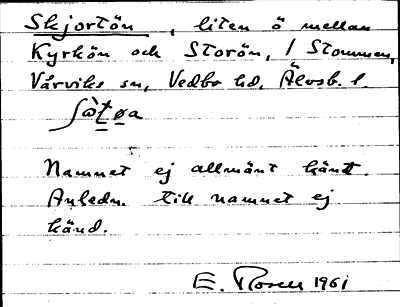 Skjortön, liten ö mellan
Kyrkön och Storön, i Stommen,
Vårviks sn, Vedbo hd, Älvsb. l.
ʃὼṯø̱a
Namnet ej allmänt känt.
Anledn. till namnet ej
känd.
E. Rosell 1961